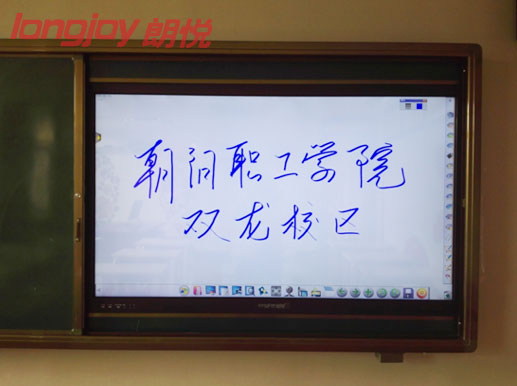 longjoy 朗悦
朝阳职工学院
双龙校区